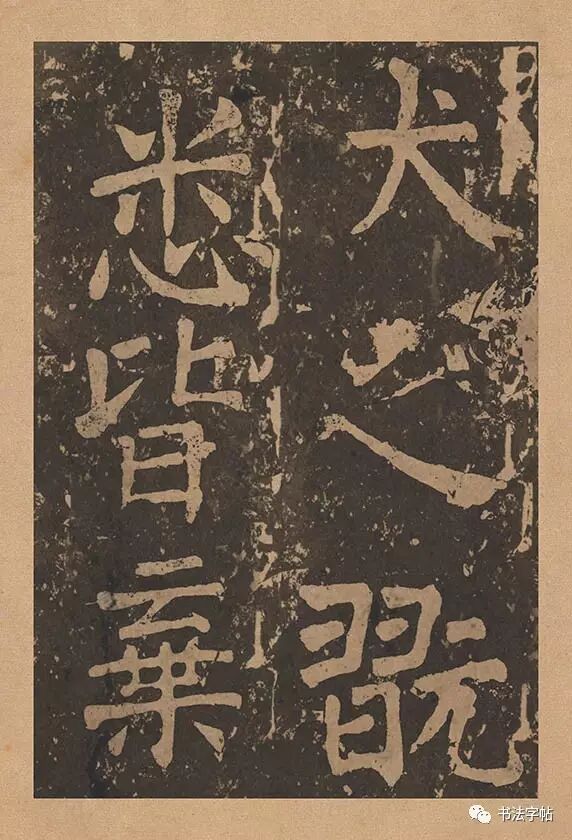 犬之翫
悉皆棄
书法字帖